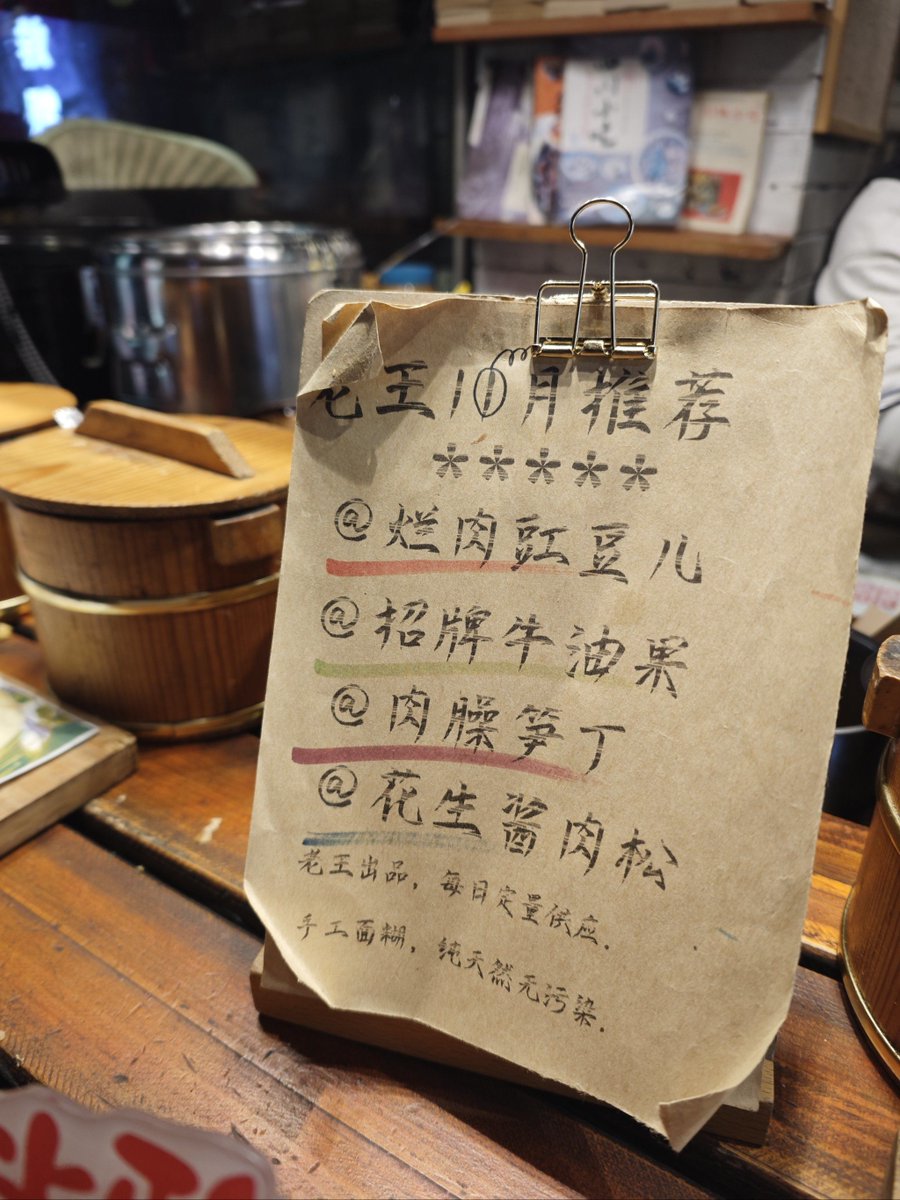 老王10月推荐
*****
@烂肉豇豆儿
@招牌牛油果
@肉臊笋丁
@花生酱肉松
老王出品，每日定量供应.
手工面糊，纯天然无污染.